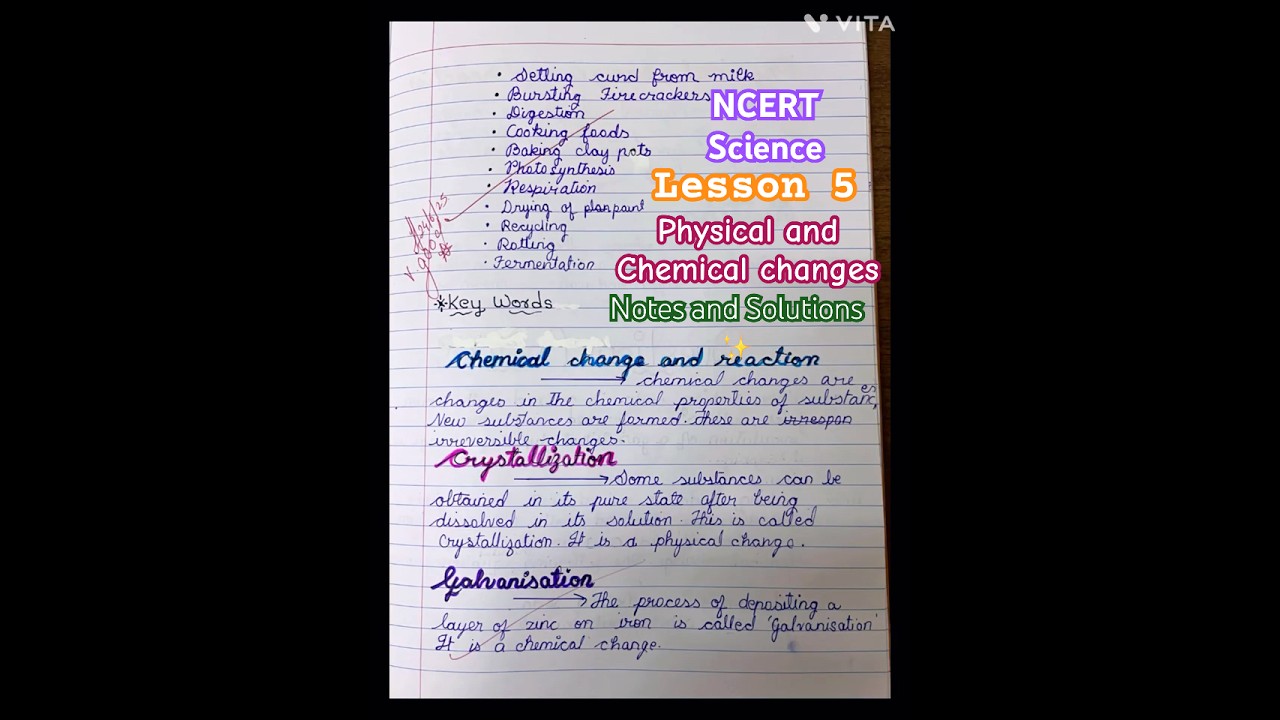 VITA
• Setting curd from milk
• Bursting Firecrackers
• Digestion
• Cooking foods
• Baking clay pots
• Photosynthesis
• Respiration
• Drying of paint
• Recycling
• Rotting
• Fermentation
NCERT
Science
Lesson 5
Physical and
Chemical changes
Notes and Solutions
24/6/25
*Key Words
Chemical change and reaction
→ chemical changes are
changes in the chemical properties of substances,
New substances are formed. These are irrespon
irreversible changes.
Crystallization
→ Some substances can be
obtained in its pure state after being
dissolved in its solution. This is called
Crystallization. It is a physical change.
Galvanisation
→ The process of depositing a
layer of zinc on iron is called 'Galvanisation'
It is a chemical change.